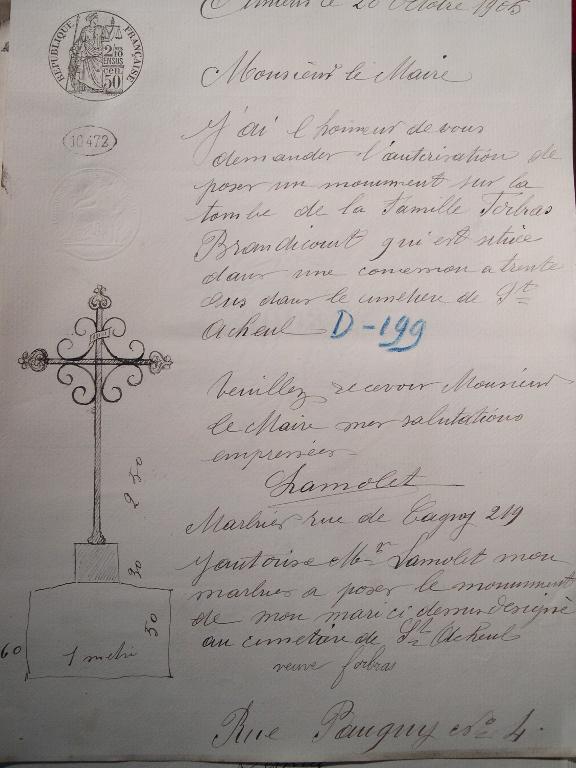 Amiens le 20 Octobre 1905
RÉPUBLIQUE FRANÇAISE
2/10
EN SUS
50
10472
Monsieur le Maire
J'ai l'honneur de vous
demander l'autorisation de
poser un monument sur la
tombe de la Famille Forbras
Brandicourt qui est située
dans une concession a trente
ans dans le cimetière de St
Acheul D-199
Veuillez recevoir Monsieur
le Maire mes salutations
empressées
Lamolet
Marbrier rue de Cagny 219
J'autorise Mr Lamolet mon
marbrier a poser le monument
de mon mari ci dessus designé
au cimetière de St Acheul
veuve forbras
Rue No 4.
2 50
30
50
60
1 metre